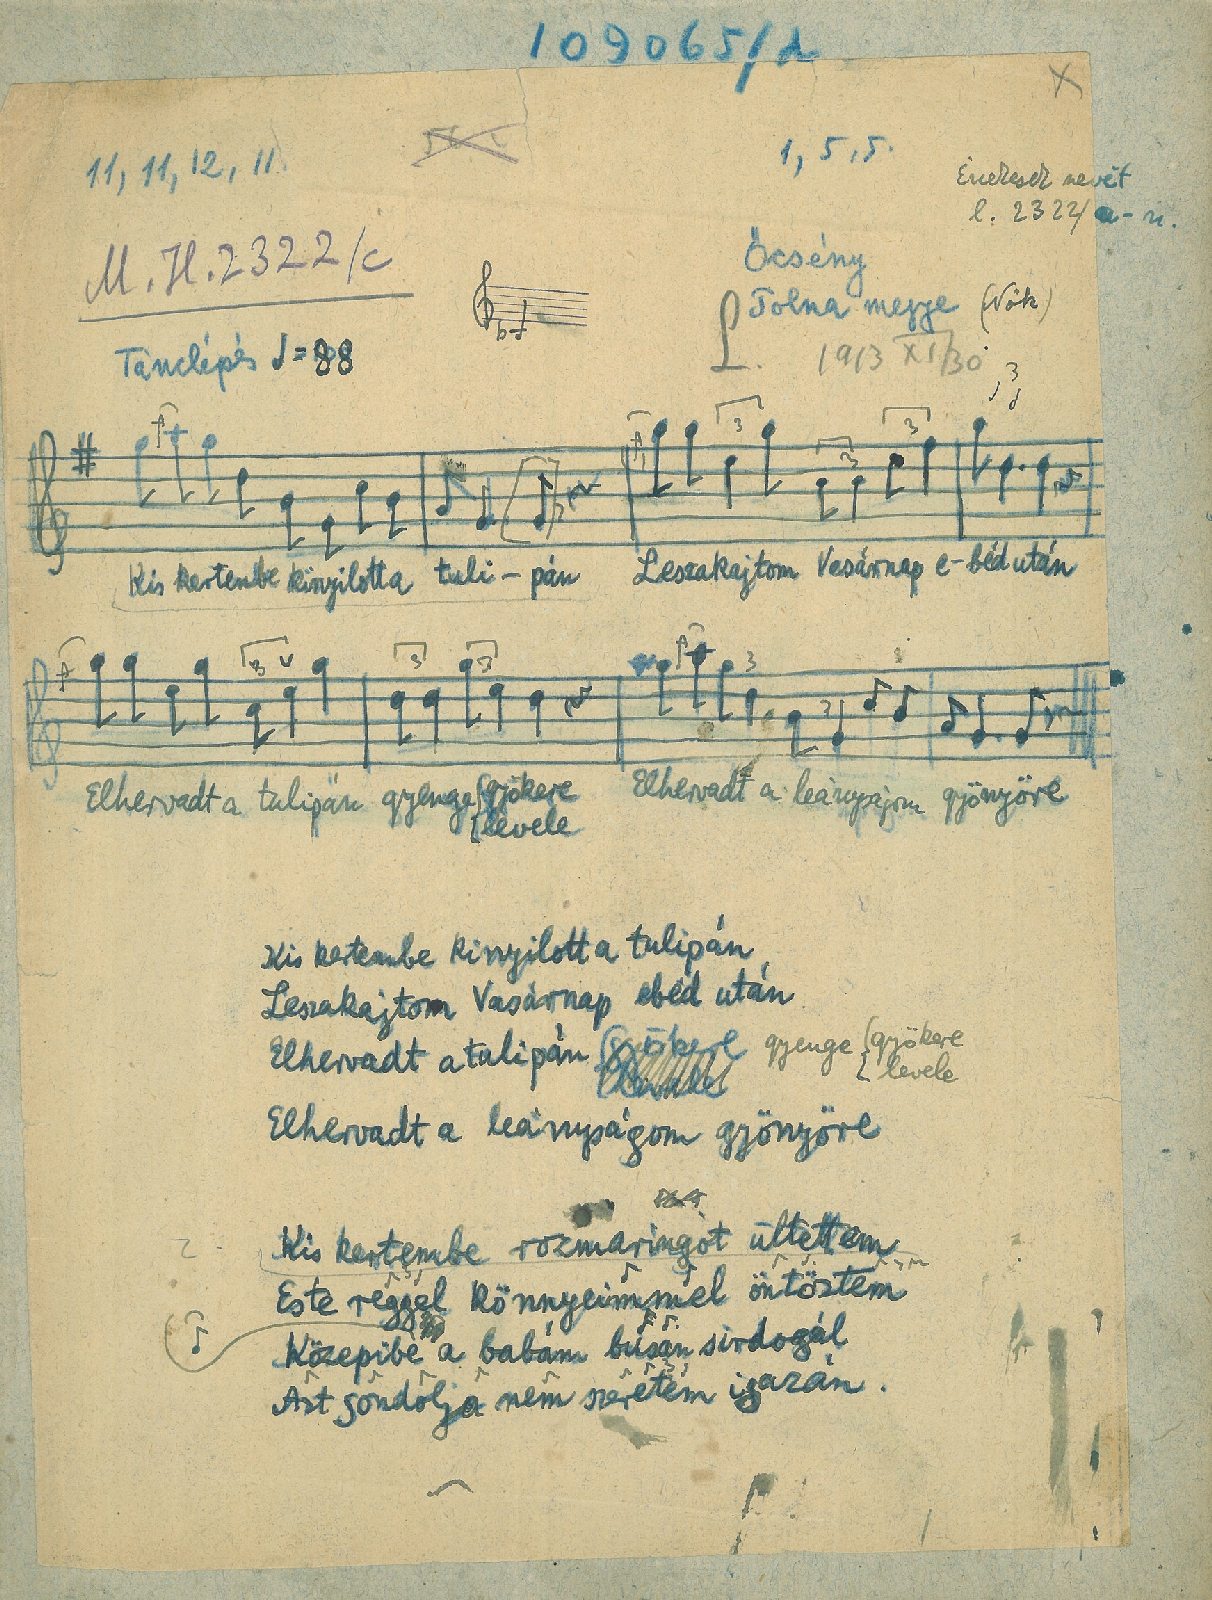 109065/d
11, 11, 12, 11.
1, 5, 5.
Énekesek nevét
l. 2322/a-n.
M.H.2322/c
Öcsény
Tolna megye (Nők)
L. 1913 XI/30
Tánclépés ♩=88
Kis kertembe kinyilott a tuli-pán Leszakajtom Vasárnap e-béd után
Elhervadt a tulipán gyenge {gyökere Elhervadt a leányságom gyönyöre
{levele
Kis kertembe kinyilott a tulipán
Leszakajtom Vasárnap ebéd után
Elhervadt a tulipán gyenge {gyökere
{levele
Elhervadt a leányságom gyönyöre
2. Kis kertembe rozmaringot ültettem
Este reggel könnyeimmel öntöztem
Közepibe a babám búsan sirdogál
Azt gondolja nem szeretem igazán.